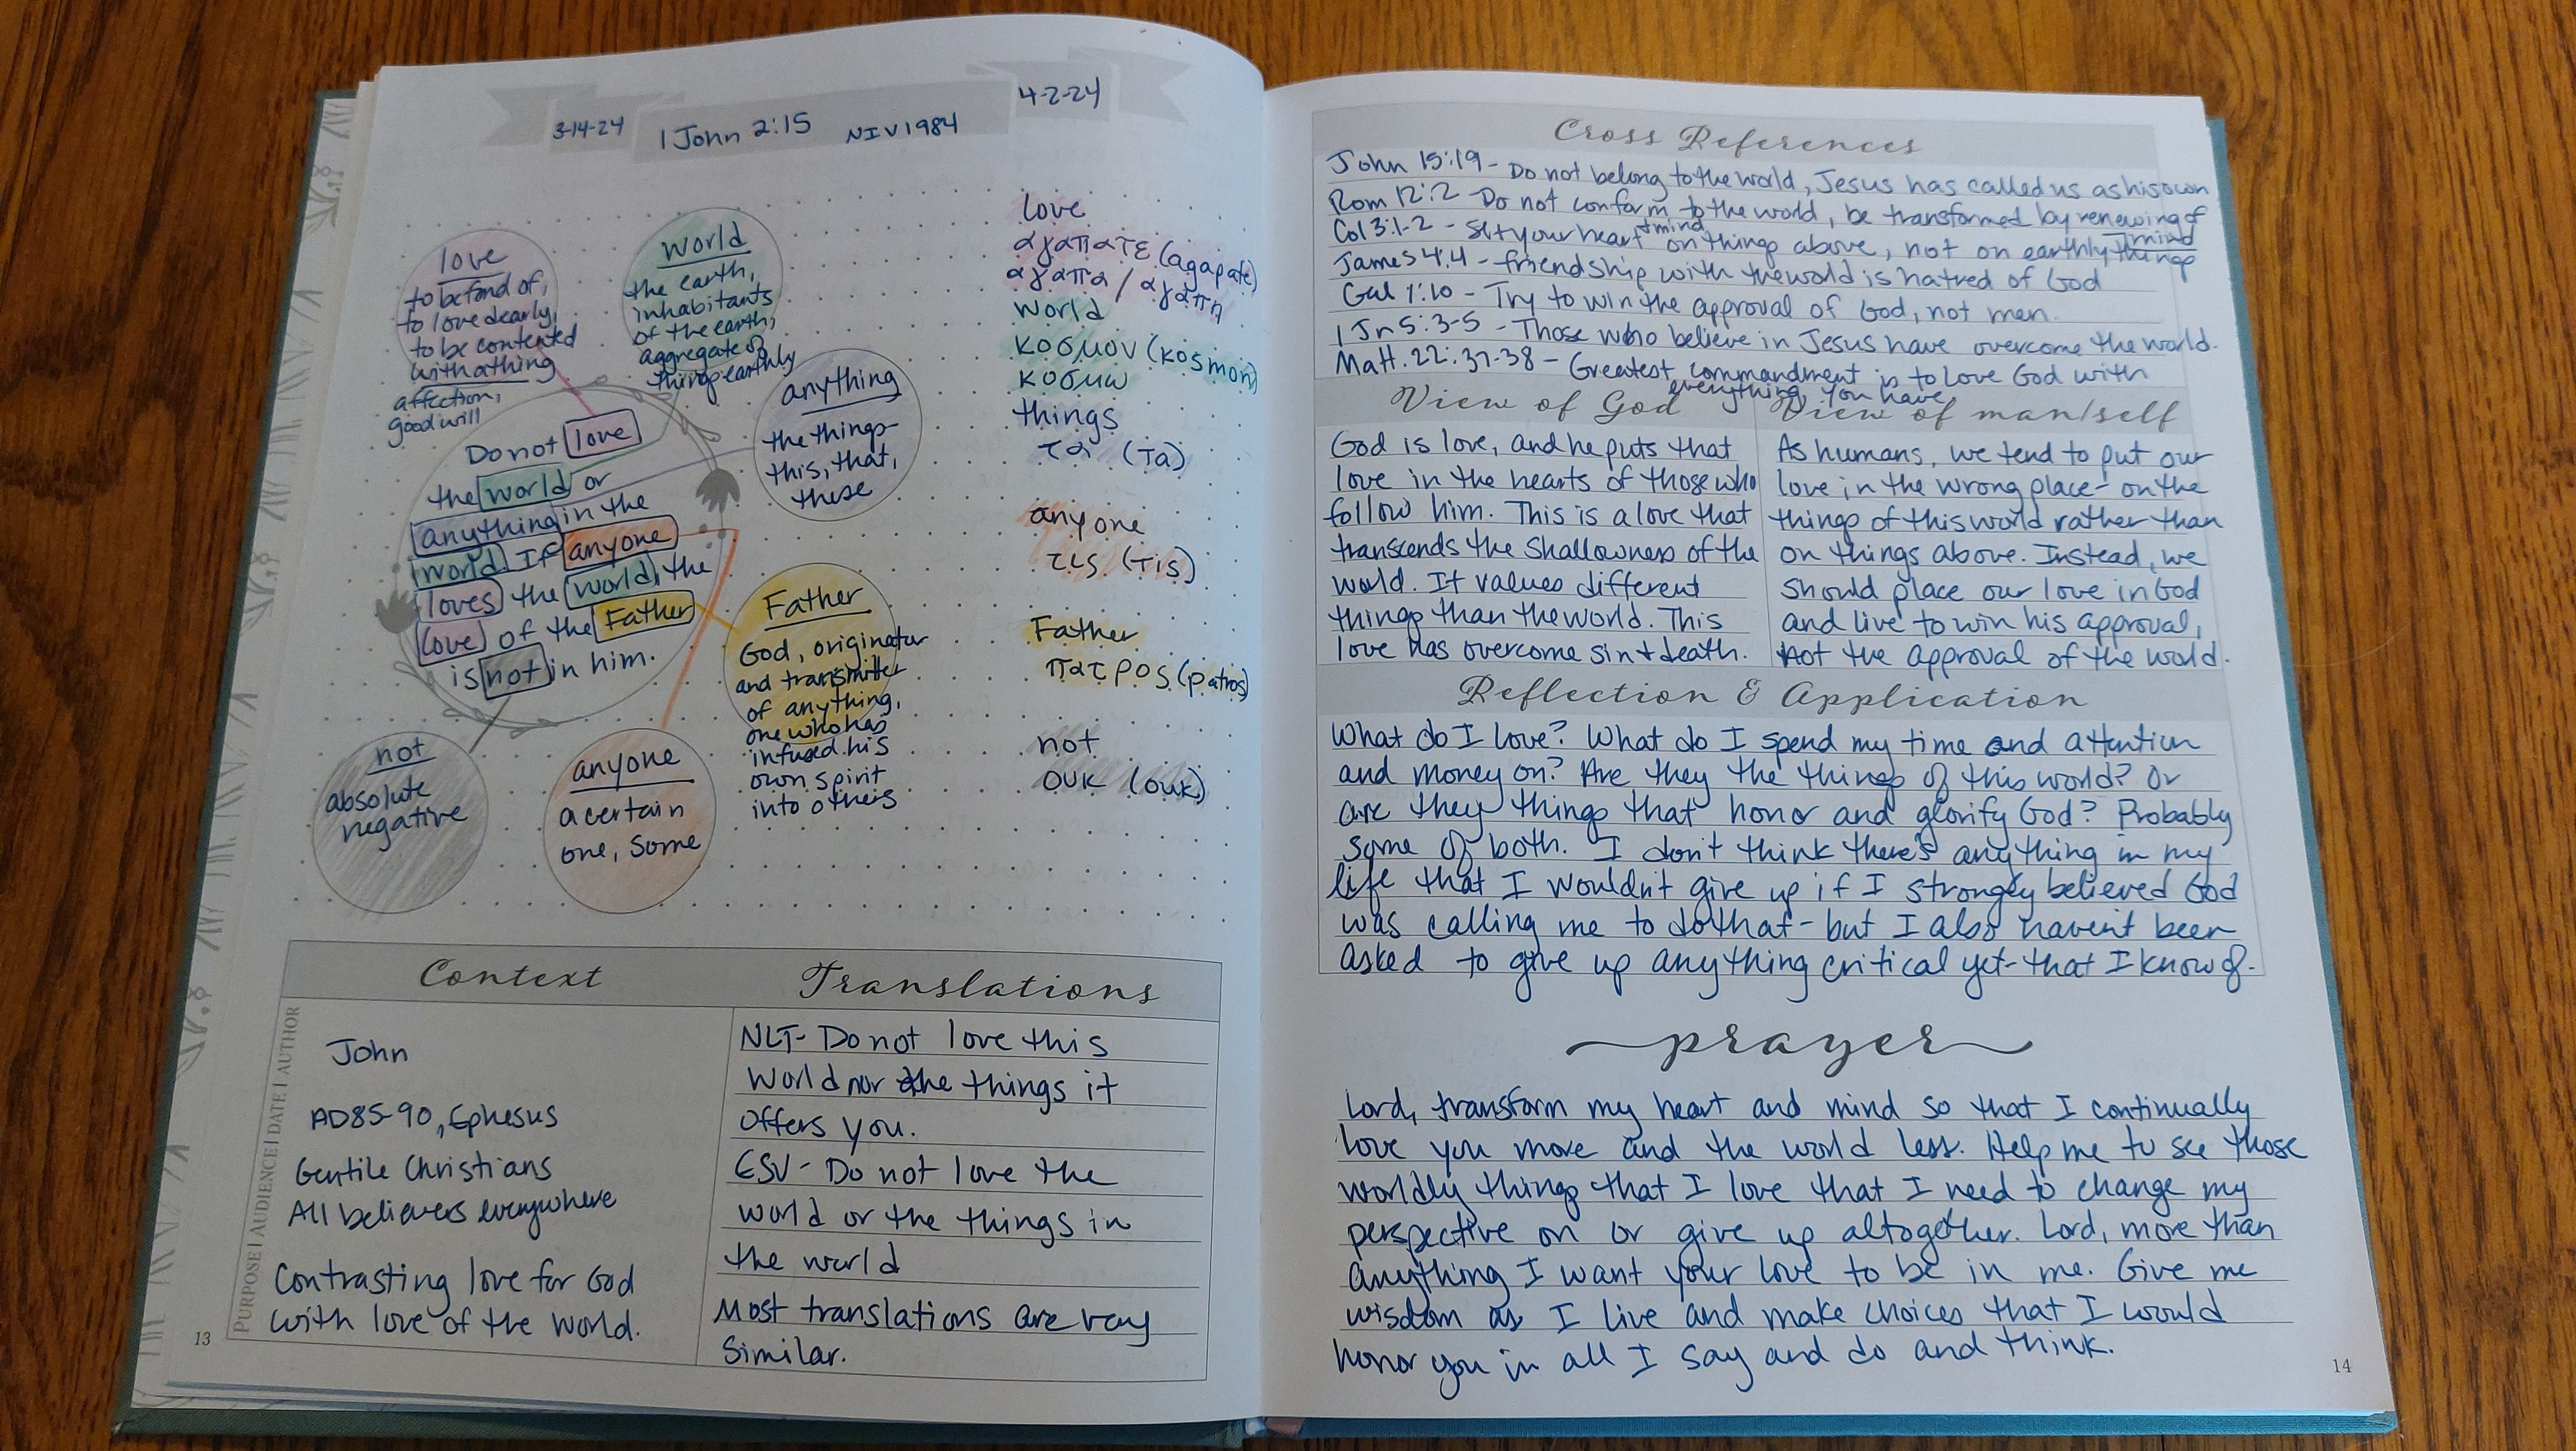 3-14-24
1 John 2:15 NIV1984
4-2-24
love
to be fond of,
to love dearly,
to be contented
with a thing
affection,
good will
world
the earth,
inhabitants
of the earth,
aggregate of
things earthly
anything
the things-
this, that,
these
Do not love
the world or
anything in the
world. If anyone
loves the world, the
love of the Father
is not in him.
Father
God, originator
and transmitter
of anything,
one who has
infused his
own spirit
into others
not
absolute
negative
anyone
a certain
one, some
love
αγαπατε (agapate)
αγαπα / αγαπη
world
κοσμον (kosmon)
κοσμω
things
τα (ta)
anyone
τις (tis)
Father
πατρος (patros)
not
ουκ (ouk)
Context
PURPOSE | AUDIENCE | DATE | AUTHOR
John
AD85-90, Ephesus
Gentile Christians
All believers everywhere
Contrasting love for God
with love of the world.
Translations
NLT- Do not love this
world nor the things it
offers you.
ESV- Do not love the
world or the things in
the world
Most translations are very
similar.
13
Cross References
John 15:19 - Do not belong to the world, Jesus has called us as his own
Rom 12:2 - Do not conform to the world, be transformed by renewing of mind
Col 3:1-2 - Set your heart + mind on things above, not on earthly things
James 4:4 - friendship with the world is hatred of God
Gal 1:10 - Try to win the approval of God, not men.
1 Jn 5:3-5 - Those who believe in Jesus have overcome the world.
Matt. 22:37-38 - Greatest commandment is to love God with
everything you have
View of God
God is love, and he puts that
love in the hearts of those who
follow him. This is a love that
transcends the shallowness of the
world. It values different
things than the world. This
love has overcome sin + death.
View of man/self
As humans, we tend to put our
love in the wrong place - on the
things of this world rather than
on things above. Instead, we
should place our love in God
and live to win his approval,
not the approval of the world.
Reflection & Application
What do I love? What do I spend my time and attention
and money on? Are they the things of this world? Or
are they things that honor and glorify God? Probably
some of both. I don't think there's anything in my
life that I wouldn't give up if I strongly believed God
was calling me to do that - but I also haven't been
asked to give up anything critical yet - that I know of.
prayer
Lord, transform my heart and mind so that I continually
love you more and the world less. Help me to see those
worldly things that I love that I need to change my
perspective on or give up altogether. Lord, more than
anything I want your love to be in me. Give me
wisdom as I live and make choices that I would
honor you in all I say and do and think.
14